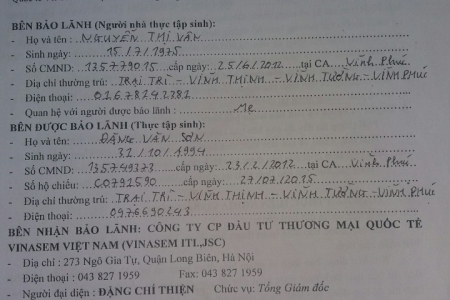 BÊN BẢO LÃNH (Người nhà thực tập sinh):
- Họ và tên: NGUYỄN THỊ VÂN
- Sinh ngày: 15/7/1975
- Số CMND: 135779015 cấp ngày: 25/6/2012 tại CA Vĩnh Phúc
- Địa chỉ thường trú: TRẠI TRÌ - VĨNH THỊNH - VĨNH TƯỜNG - VĨNH PHÚC
- Điện thoại: 01678242782
- Quan hệ với người được bảo lãnh: Mẹ
BÊN ĐƯỢC BẢO LÃNH (Thực tập sinh):
- Họ và tên: ĐẶNG VĂN SƠN
- Sinh ngày: 31/10/1994
- Số CMND: 135749373 cấp ngày: 23/2/2012 tại CA Vĩnh Phúc
- Số hộ chiếu: C0792590 cấp ngày: 27/07/2015
- Địa chỉ thường trú: TRẠI TRÌ - VĨNH THỊNH - VĨNH TƯỜNG - VĨNH PHÚC
- Điện thoại: 0976690243
BÊN NHẬN BẢO LÃNH: CÔNG TY CP ĐẦU TƯ THƯƠNG MẠI QUỐC TẾ
VINASEM VIỆT NAM (VINASEM ITI.,JSC)
- Địa chỉ : 273 Ngô Gia Tự, Quận Long Biên, Hà Nội
- Điện thoại : 043 827 1959 Fax: 043 827 1959
- Người đại diện : ĐẶNG CHÍ THIỆN Chức vụ: Tổng Giám đốc